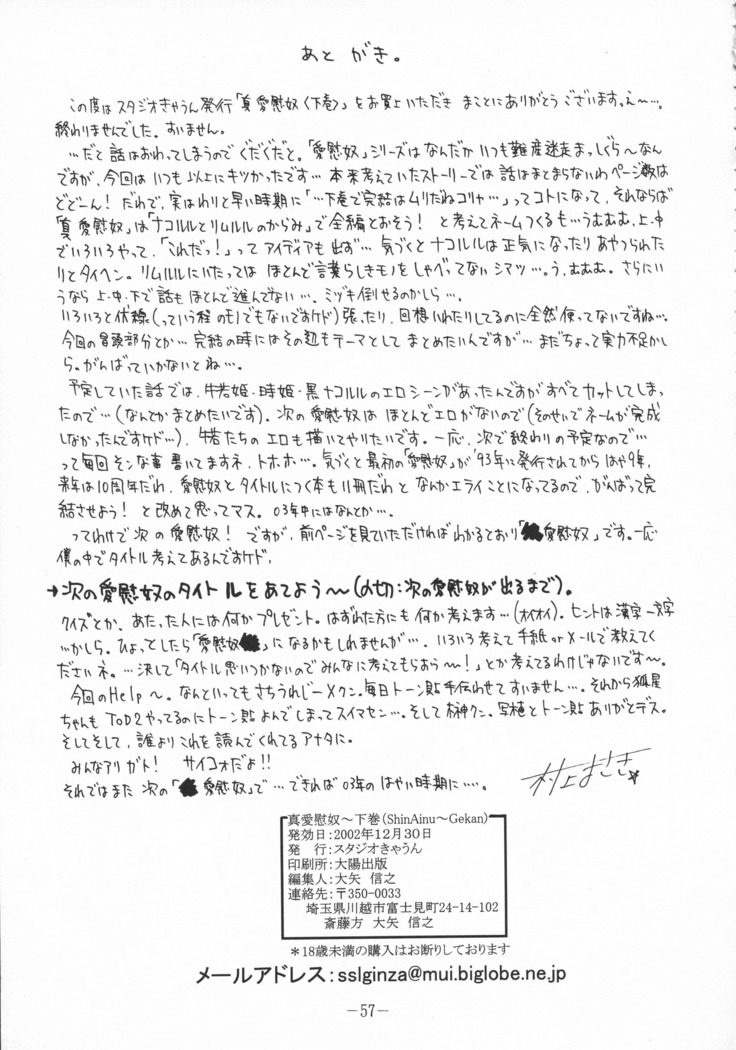 あとがき。
この度はスタジオきゃうん発行「真愛慰奴〈下巻〉」をお買上いただき まことにありがとうございます。え〜…。
終わりませんでした。すいません。
…だと話はおわってしまうのでぐだぐだと。「愛慰奴」シリーズはなんだかいつも難産迷走まっしぐら〜なん
ですが、今回はいつも以上にキツかったです… 本来考えていたストーリーでは話はまとまらないわページ数は
どどーん! だわで、実はわりと早い時期に「…下巻で完結はムリだねコリャ…」ってコトになって、それならば
「真愛慰奴」は「ナコルルとリムルルのからみ」で全編とおそう! と考えてネームつくるも…うむむむ、上、中
でいろいろやって、「これだっ!」ってアイディアも出ず… 気づくとナコルルは正気になったりあやつられた
りとタイヘン。リムルルにいたっては ほとんど言葉らしきモノをしゃべってないシマツ…。う、むむむ。さらにい
うなら 上・中・下で話もほとんど進んでない…。ミヅキ倒せるのかしら…。
いろいろと伏線(っていう程のモノでもないですケド)張ったり、回想いれたりしてるのに全然使ってないですね…。
今回の冒頭部分とか… 完結の時にはその辺もテーマとして まとめたいんですが… まだちょって実力不足かし
ら。がんばっていかないとね…。
予定していた話では、牛若姫・時姫・黒ナコルルのエロシーンがあったんですがすべてカットしてしまっ
たので…(なんとかまとめたいです)。次の愛慰奴は ほとんどエロがないので(そのせいでネームが完成
しなかったんですケド…)、牛若たちの エロも描いてやりたいです。一応、次で終わりの予定なので…
って毎回そンな事 書いてますネ、トホホ…。気づくと最初の「愛慰奴」が'93年に発行されてからはや9年、
来年は10周年だわ、愛慰奴とタイトルにつく本も11冊だわ と なんかエライことになってるので、がんばって完
結させよう! と改めて思ってマス。03年中にはなんとか…。
ってわけで次の愛慰奴! ですが、前ページを見ていただければわかるとおり「愛慰奴」です。一応
僕の中でタイトル考えてあるんですケド、
→次の愛慰奴のタイトルをあてよう〜(〆切:次の愛慰奴が出るまで)。
クイズとか、あたった人には何かプレゼント。はずれた方にも何か考えます…(オイオイ)。ヒントは漢字一文字
…かしら。ひょっとしたら「愛慰奴」になるかもしれませんが…。いろいろ考えて手紙orメールで教えてく
ださいネ。…決して「タイトル思いつかないのでみんなに考えてもらおう〜!」とか考えてるわけじゃないです〜。
今回のHelp〜。なんといってもさちうれじーXクン。毎日トーン貼手伝わせてすいません…。それから狐星
ちゃんも ToD2やってるのにトーン貼よんでしまってスイマセン…。そして榊クン。写植とトーン貼ありがとデス。
そしてそして、誰よりこれを読んでくれてるアナタに。
みんなアリガト! サイコォだよ!!
それではまた 次の「愛慰奴」で…できれば 03年の はやい時期に….
村上まさき
真愛慰奴〜下巻(ShinAinu〜Gekan)
発効日:2002年12月30日
発 行:スタジオきゃうん
印刷所:大陽出版
編集人:大矢 信之
連絡先:〒350-0033
埼玉県川越市富士見町24-14-102
斎藤方 大矢 信之
*18歳未満の購入はお断りしております
メールアドレス:sslginza@mui.biglobe.ne.jp
-57-